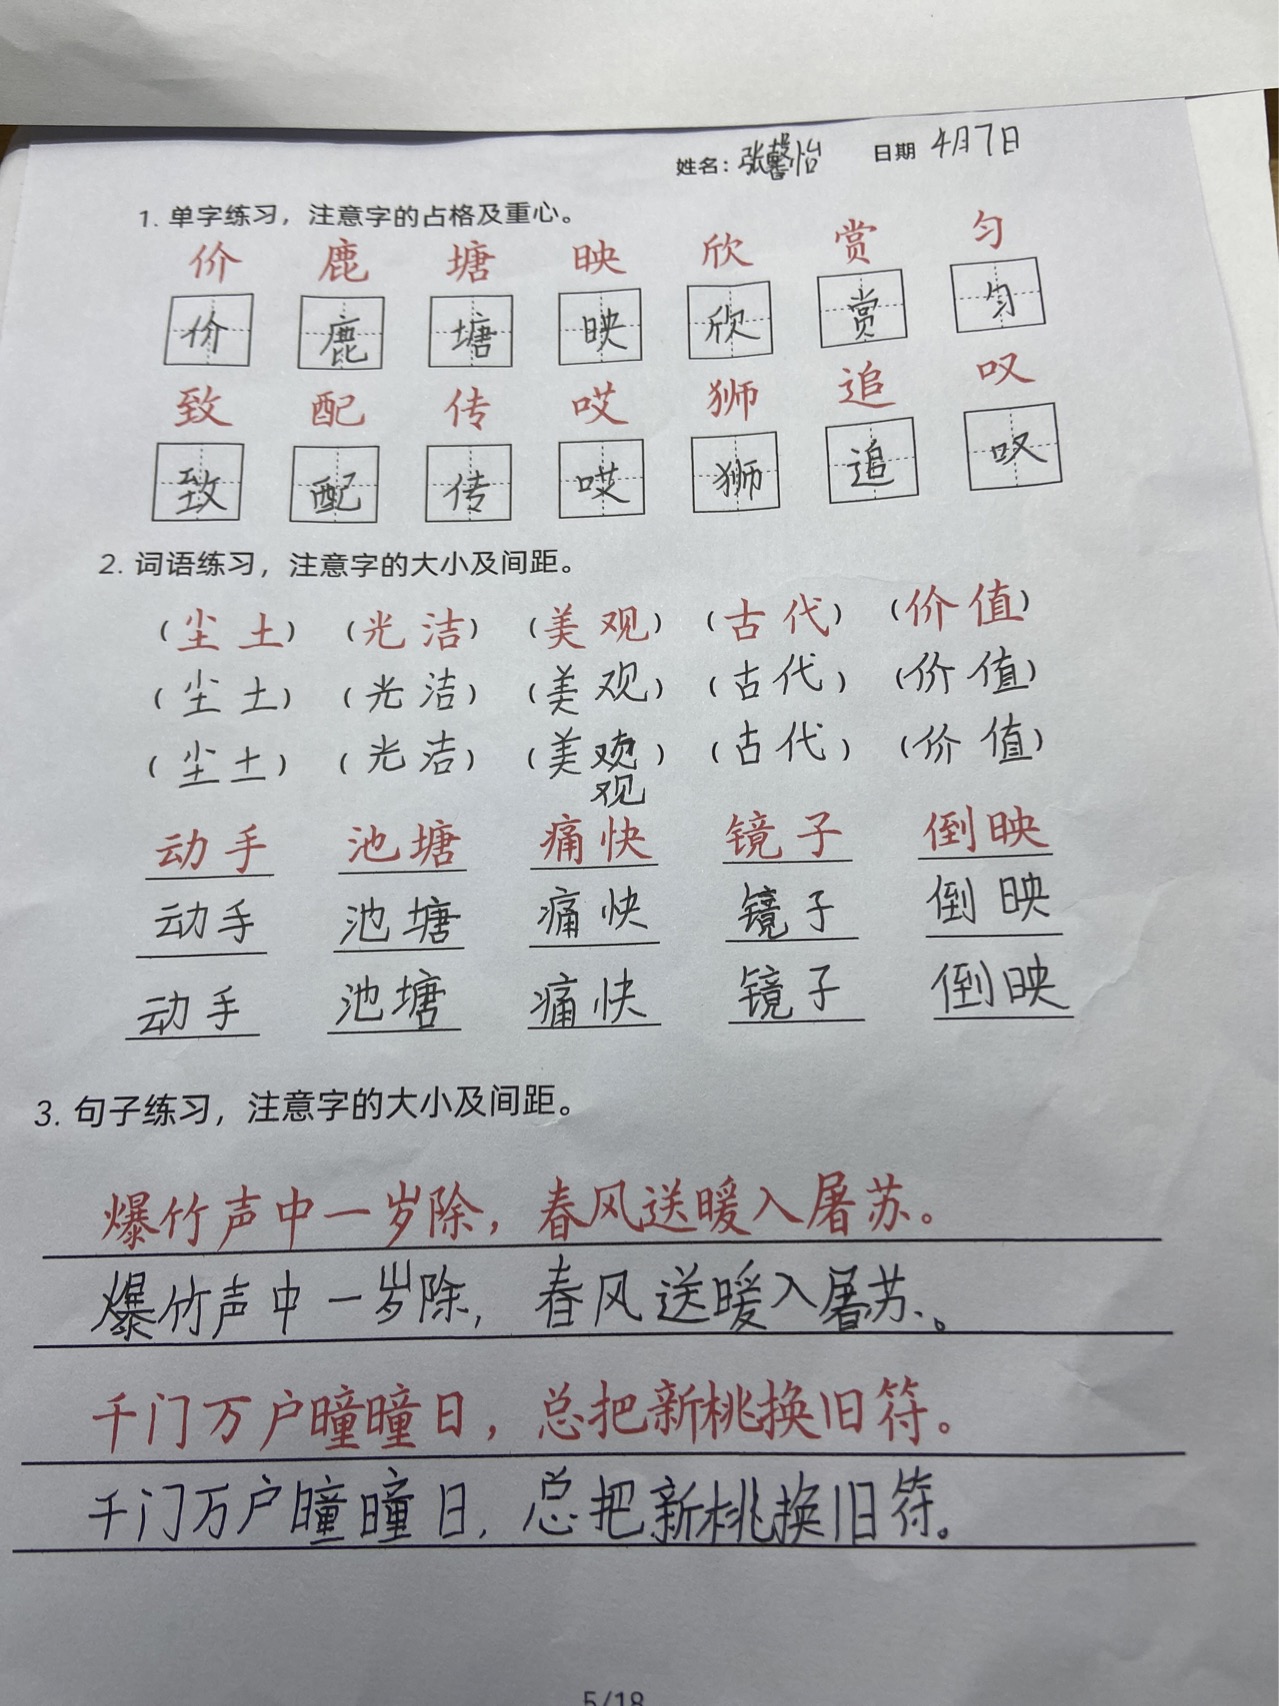 姓名：张馨怡 日期 4月7日
1. 单字练习，注意字的占格及重心。
价 鹿 塘 映 欣 赏 匀
价 鹿 塘 映 欣 赏 匀
致 配 传 哎 狮 追 叹
致 配 传 哎 狮 追 叹
2. 词语练习，注意字的大小及间距。
（尘土） （光洁） （美观） （古代） （价值）
（尘土） （光洁） （美观） （古代） （价值）
（尘土） （光洁） （美） （古代） （价值）
观
动手 池塘 痛快 镜子 倒映
动手 池塘 痛快 镜子 倒映
动手 池塘 痛快 镜子 倒映
3. 句子练习，注意字的大小及间距。
爆竹声中一岁除，春风送暖入屠苏。
爆竹声中一岁除，春风送暖入屠苏。
千门万户曈曈日，总把新桃换旧符。
千门万户曈曈日，总把新桃换旧符。
5/18